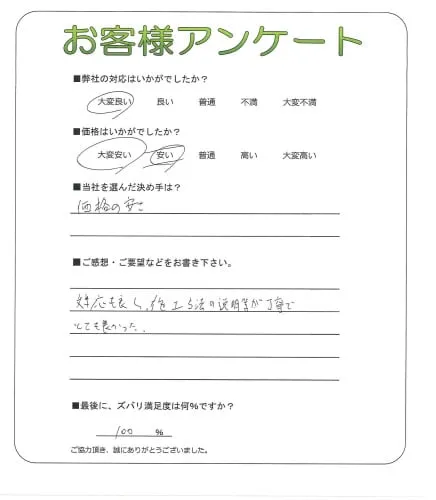 お客様アンケート
■弊社の対応はいかがでしたか?
大変良い 良い 普通 不満 大変不満
■価格はいかがでしたか?
大変安い 安い 普通 高い 大変高い
■当社を選んだ決め手は?
価格の安さ
■ご感想・ご要望などをお書き下さい。
対応も良く、施工方法の説明等が丁寧で
とても良かった。
■最後に、ズバリ満足度は何%ですか?
100 %
ご協力頂き、誠にありがとうございました。